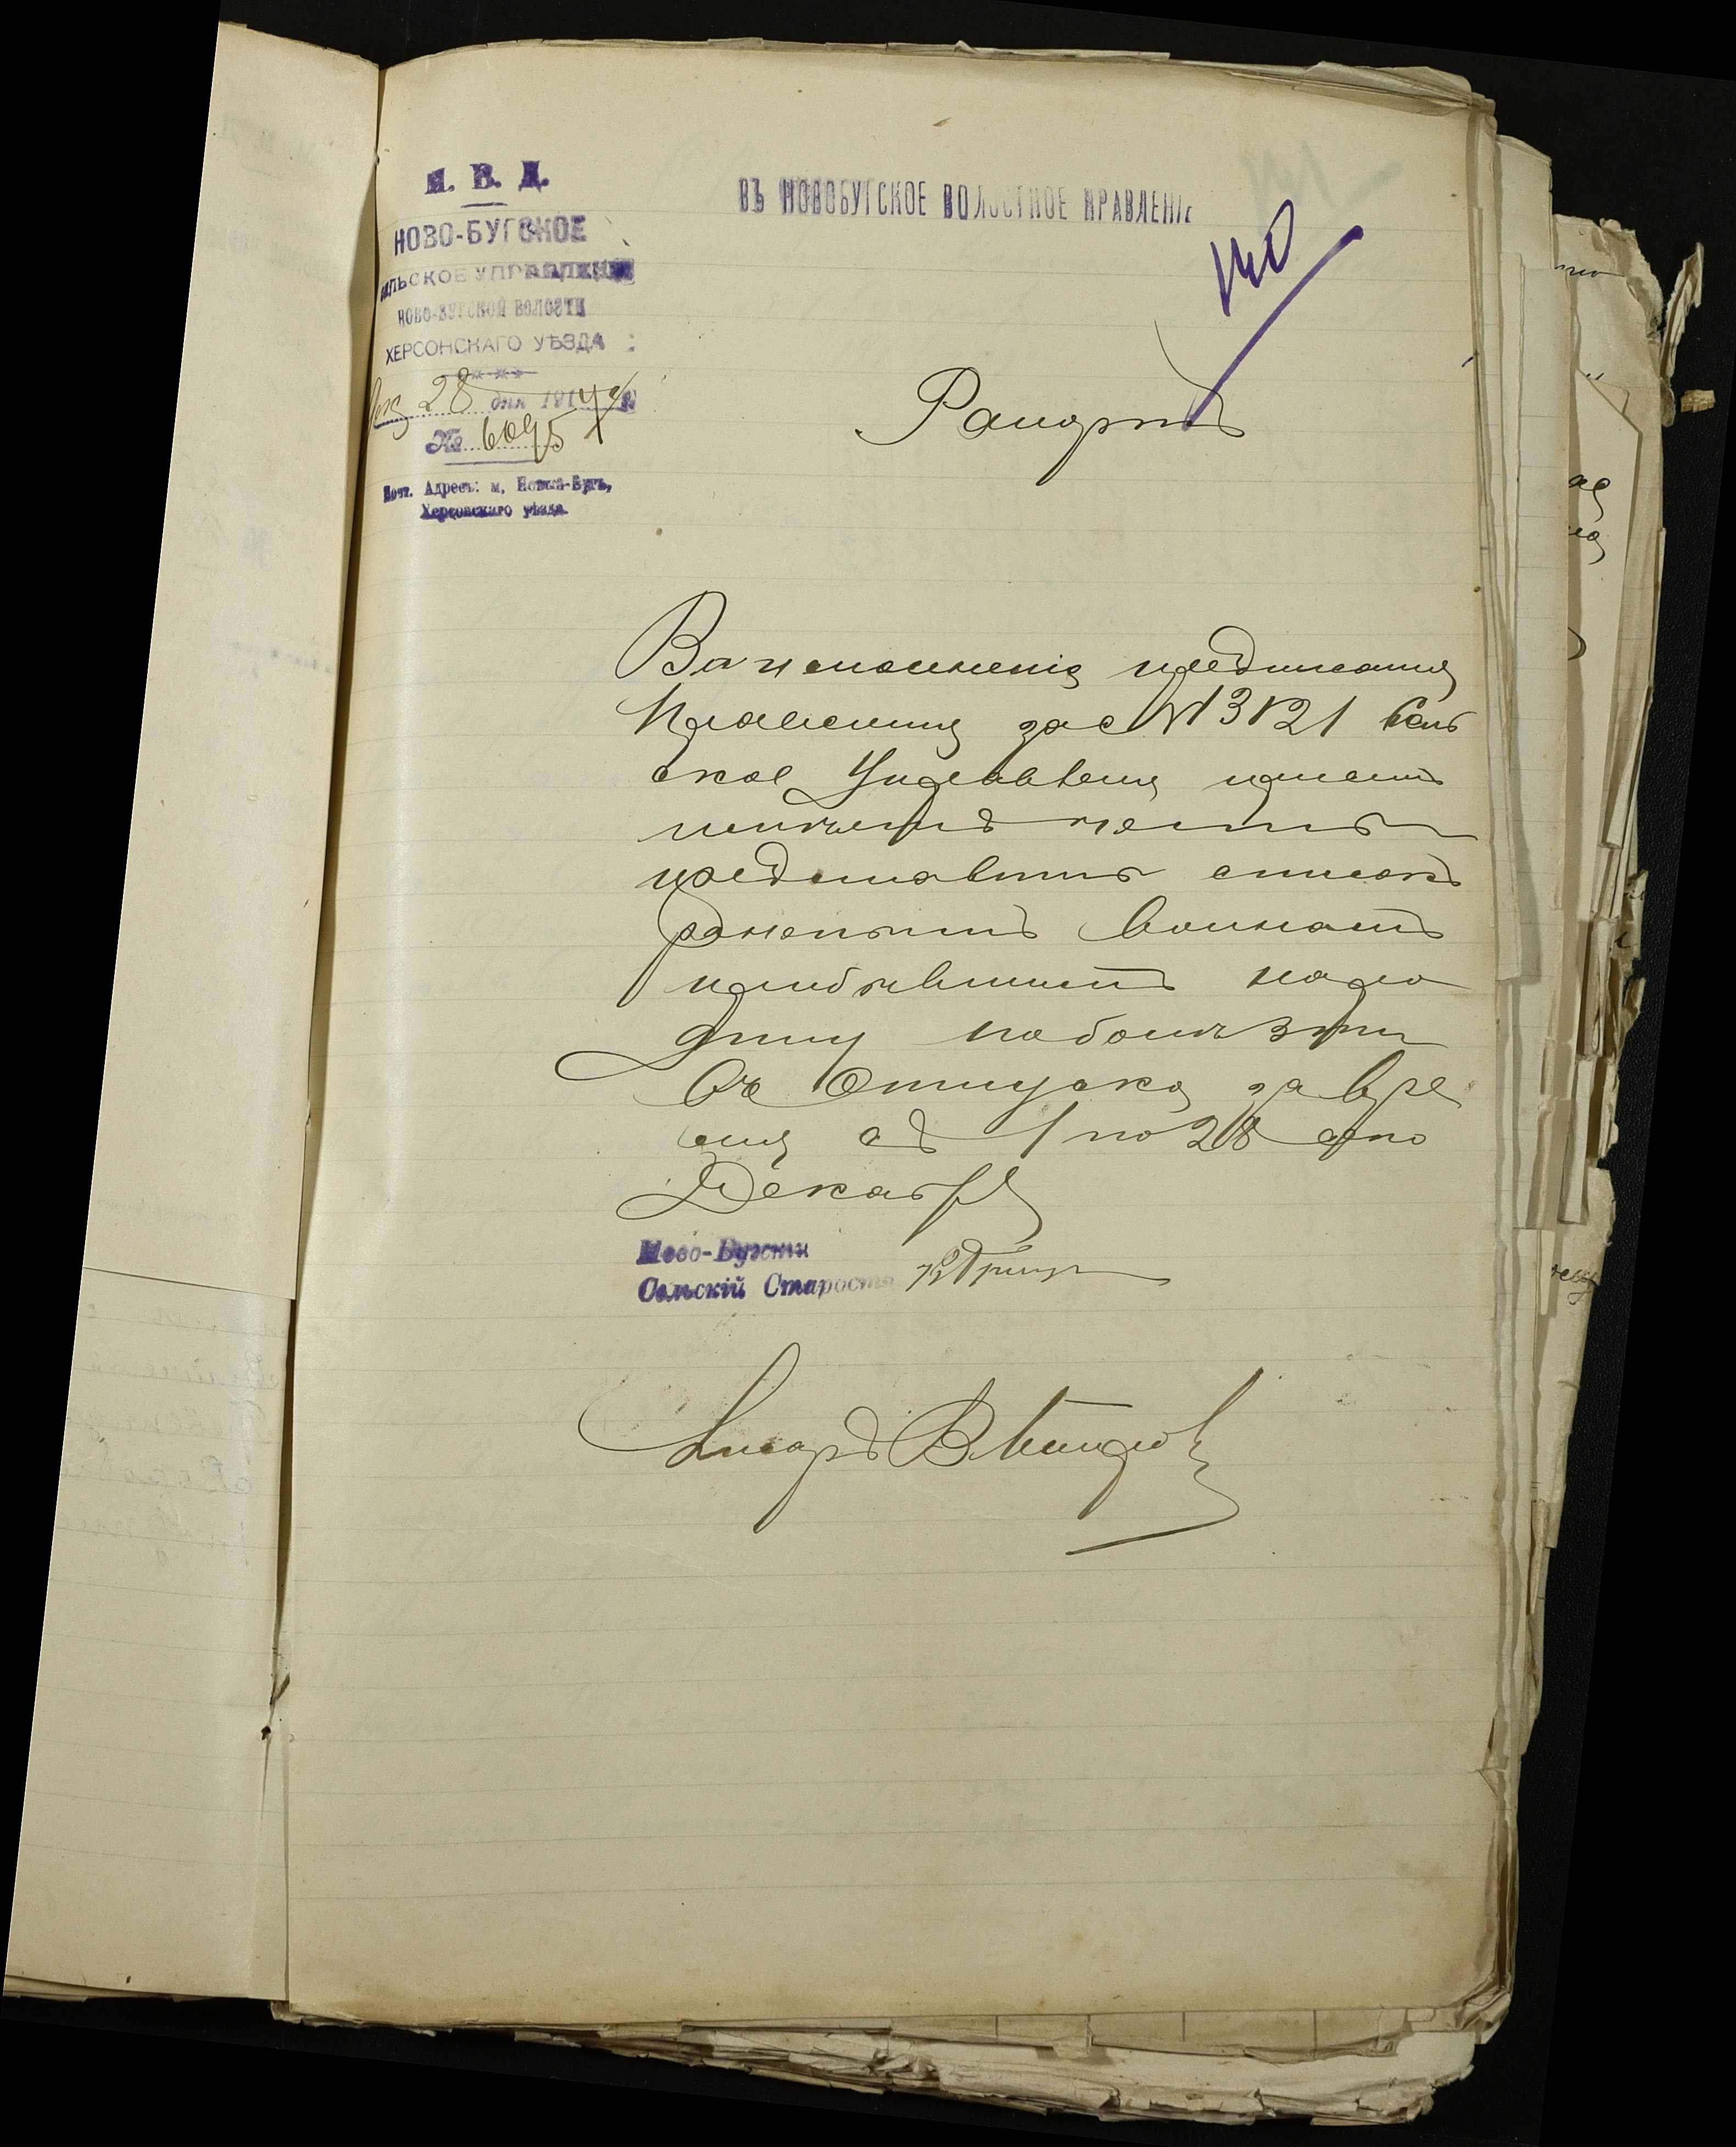 М. В. Д.
НОВО-БУГСКОЕ
СЕЛЬСКОЕ УПРАВЛЕНІЕ
НОВО-БУГСКОЙ ВОЛОСТИ
ХЕРСОНСКАГО УѢЗДА
28 дня 1914 г.
№ 6095
Почт. Адресъ: м. Новый-Бугъ,
Херсонскаго уѣзда.
ВЪ НОВОБУГСКОЕ ВОЛОСТНОЕ ПРАВЛЕНІЕ
140
Рапортъ
Во исполненіе предписанія
Правленія за № 3121 Сель
ское Управленіе
честь
представить списокъ
раненымъ воинамъ
прибывшимъ наро
дину по болѣзни
въ Отпуска за вре
мя съ 1 по 28 сего
Декабря
Ново-Бугскій
Сельскій Староста
Писарь